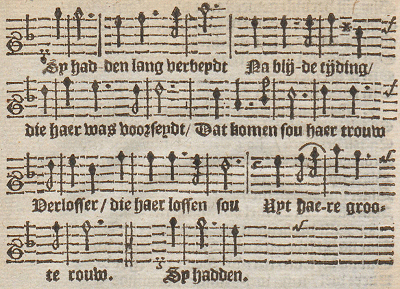 Sy had-den lang verbeydt Na blij-de tijding/
die haer was voorseydt/ Dat komen sou haer trouw
Verlosser/ die haer lossen sou Uyt hae-re groo-
te rouw. Sy hadden.